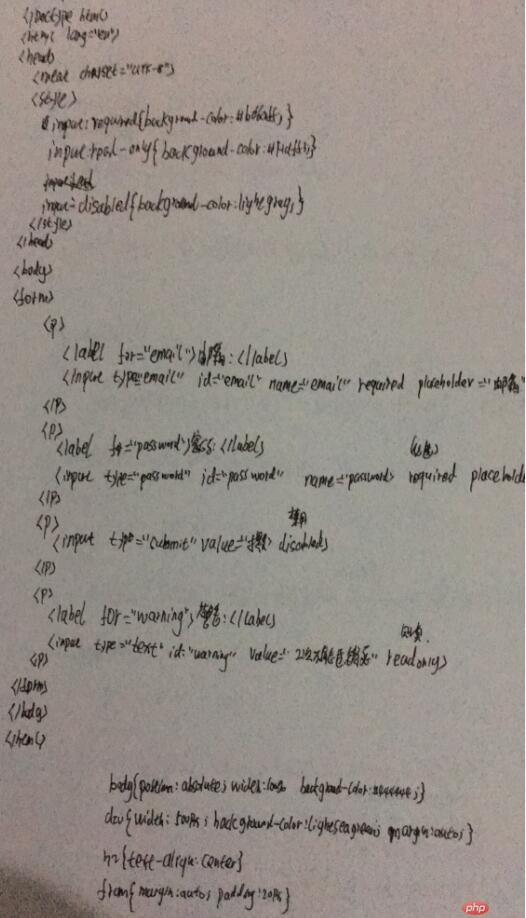 <!doctype html>
<html lang="en">
<head>
<meat charset="UTF-8">
<style>
input:required{background-color:
input:read-only{background-color:
input:disabled{background-color:lightgray;}
</style>
</head>
<body>
<form>
<p>
<label for="email">邮箱:</label>
<input type="email" id="email" name="email" required placeholder="邮箱"
</p>
<p>
<label for="password">密码:</label>
<input type="password" id="password" name="password> required placehold
</p>
<p>
禁用
<input type="submit" value="提交> disabled>
</p>
<p>
<label for="warning">警告:</label>
<input type="text" id="warning" value=" readonly>
<p>
</form>
</body>
</html>
body{position:absolute; width:100% background-color:
div{width: 500px; background-color:lightseagreen; margin:auto;}
h2{text-align:center}
from{margin:auto; padding:20px}
php